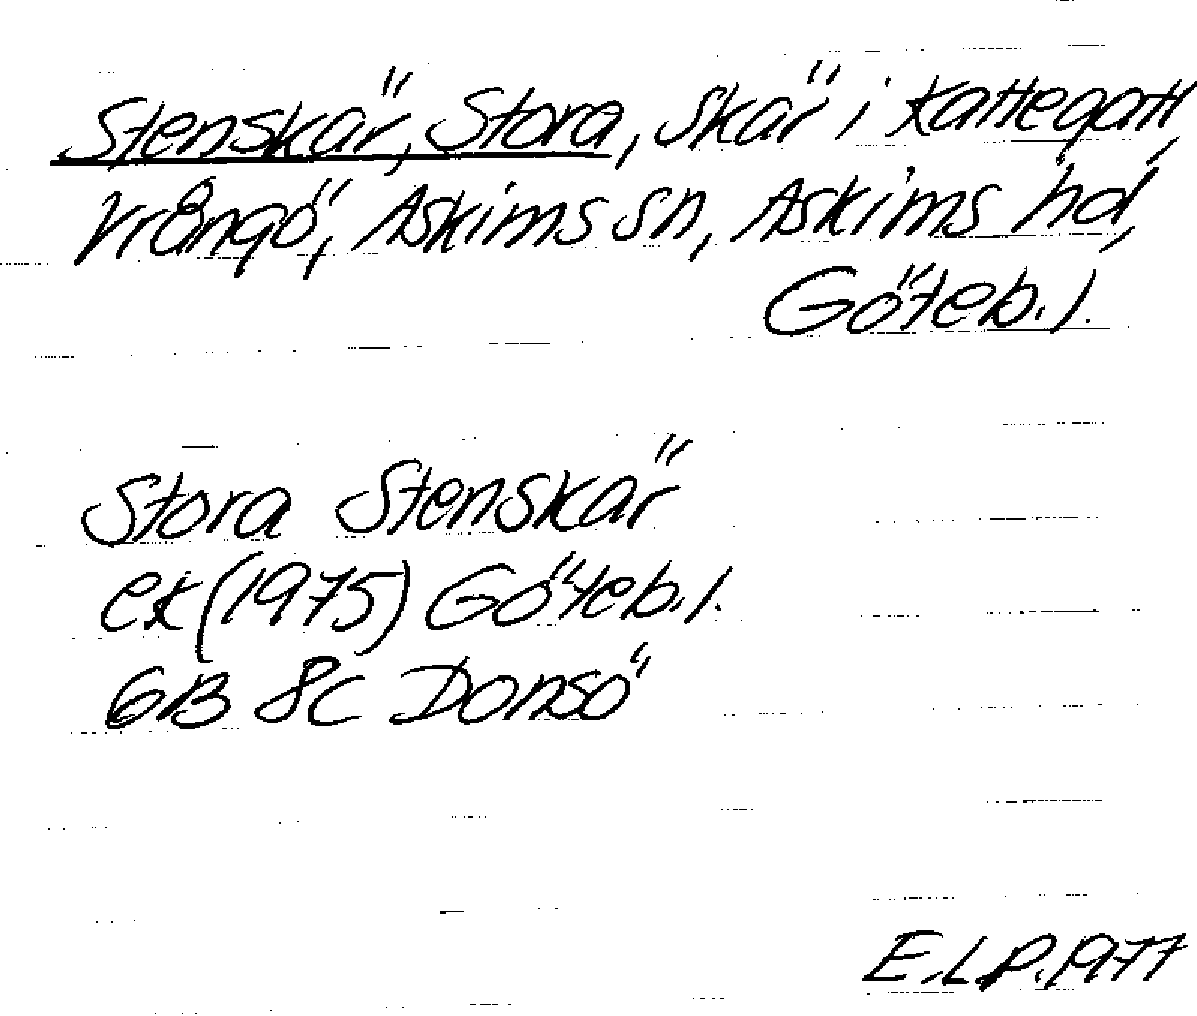 Stenskär, Stora, Skär i Kattegatt,
Vrångö, Askims sn, Askims hd,
Göteb. l.
Stora Stenskär
ek (1975) Göteb. l.
6B 8c Donsö
E.L.P. 1977